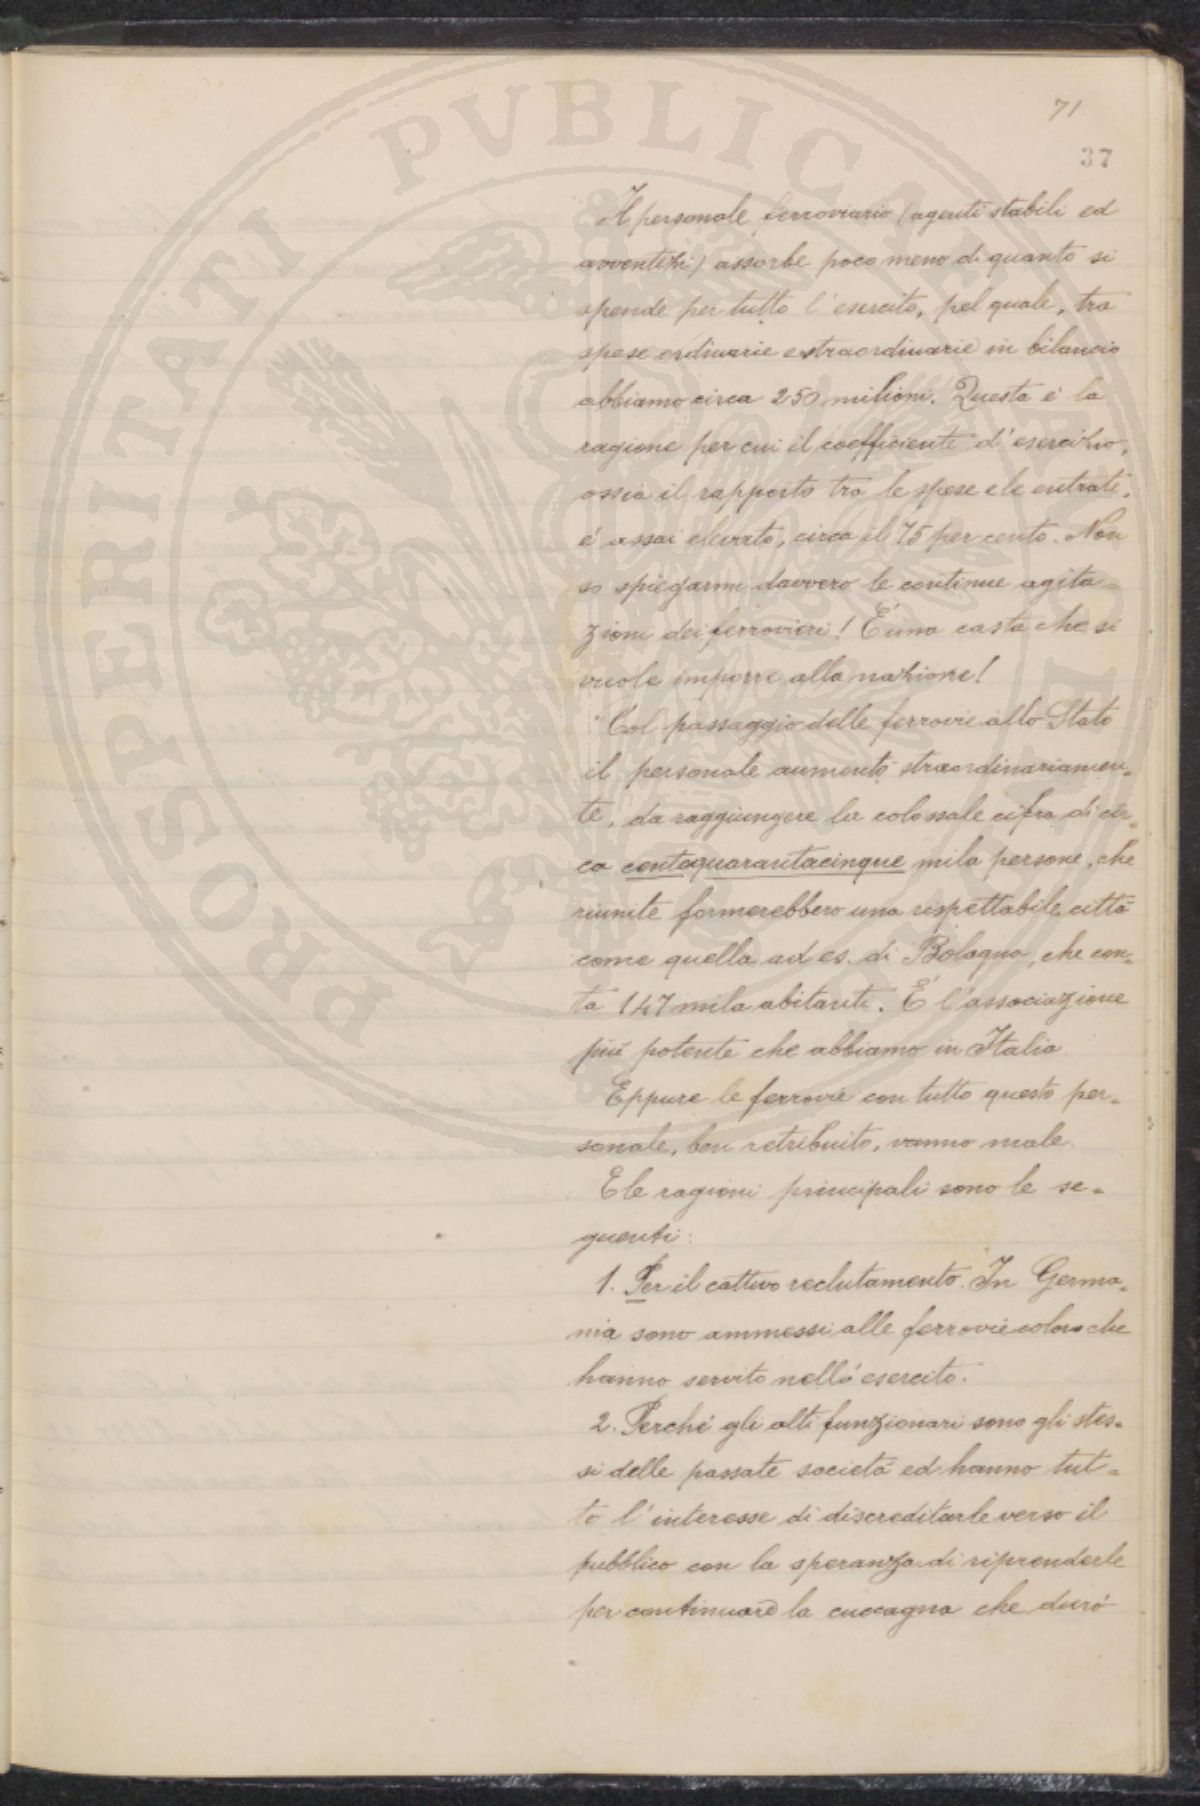 PROSPERITATI PVBLICAE
71
37
Il personale ferroviario (agenti stabili ed
avventizi) assorbe poco meno di quanto si
spende per tutto l'esercito, pel quale, tra
spese ordinarie e straordinarie in bilancio
abbiamo circa 250 milioni. Questa è la
ragione per cui il coefficiente d'esercizio,
ossia il rapporto tra le spese e le entrate,
è assai elevato, circa il 75 per cento. Non
so spiegarmi davvero le continue agita=
zioni dei ferrovieri! È una casta che si
vuole imporre alla nazione!
Col passaggio delle ferrovie allo Stato
il personale aumentò straordinariamen=
te, da raggiungere la colossale cifra di cir=
ca centoquarantacinque mila persone, che
riunite formerebbero una rispettabile città
come quella ad es. di Bologna, che con=
ta 147 mila abitanti. È l'associazione
più potente che abbiamo in Italia.
Eppure le ferrovie con tutto questo per=
sonale, ben retribuito, vanno male.
E le ragioni principali sono le se=
guenti:
1. Per il cattivo reclutamento. In Germa=
nia sono ammessi alle ferrovie coloro che
hanno servito nell'esercito.
2. Perché gli alti funzionari sono gli stes=
si delle passate società ed hanno tut=
to l'interesse di discreditarle verso il
pubblico con la speranza di riprenderle
per continuare la cuccagna che durò